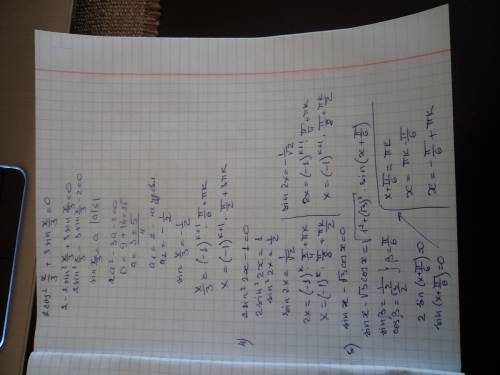 2cos² x/3 + 3 sin x/3 = 0
2 - 2sin² x/3 + 3 sin x/3 = 0
2sin² x/3 - 3 sin x/3 - 2 = 0
sin x/3 = a |a|≤1
2a² - 3a - 2 = 0
D = 9 + 16 = 25
a = 3 ± 5 / 4
a₁ = 2 -
a₂ = - 1/2
sin x/3 = - 1/2
x/3 = (-1)^(k+1) π/6 + πk
x = (-1)^(k+1) · π/2 + 3πk
4) 2 sin² 2x - 1 = 0
2 sin² 2x = 1
sin² 2x = 1/2
sin 2x = 1/√2
2x = (-1)^k π/4 + πk
x = (-1)^k · π/8 + πk/2
sin 2x = - 1/√2
2x = (-1)^(k+1) π/4 + πk
x = (-1)^(k+1) · π/8 + πk/2
5) sin x √3 cos x = 0
sin x √3 cos x = √(1² + (√3)²) · sin (x + π/6)
sin β = 1/2
cos β = √3/2 } β = π/6
2 sin (x + π/6) = 0
sin (x + π/6) = 0
x + π/6 = πk
x = πk - π/6
x = - π/6 + πk